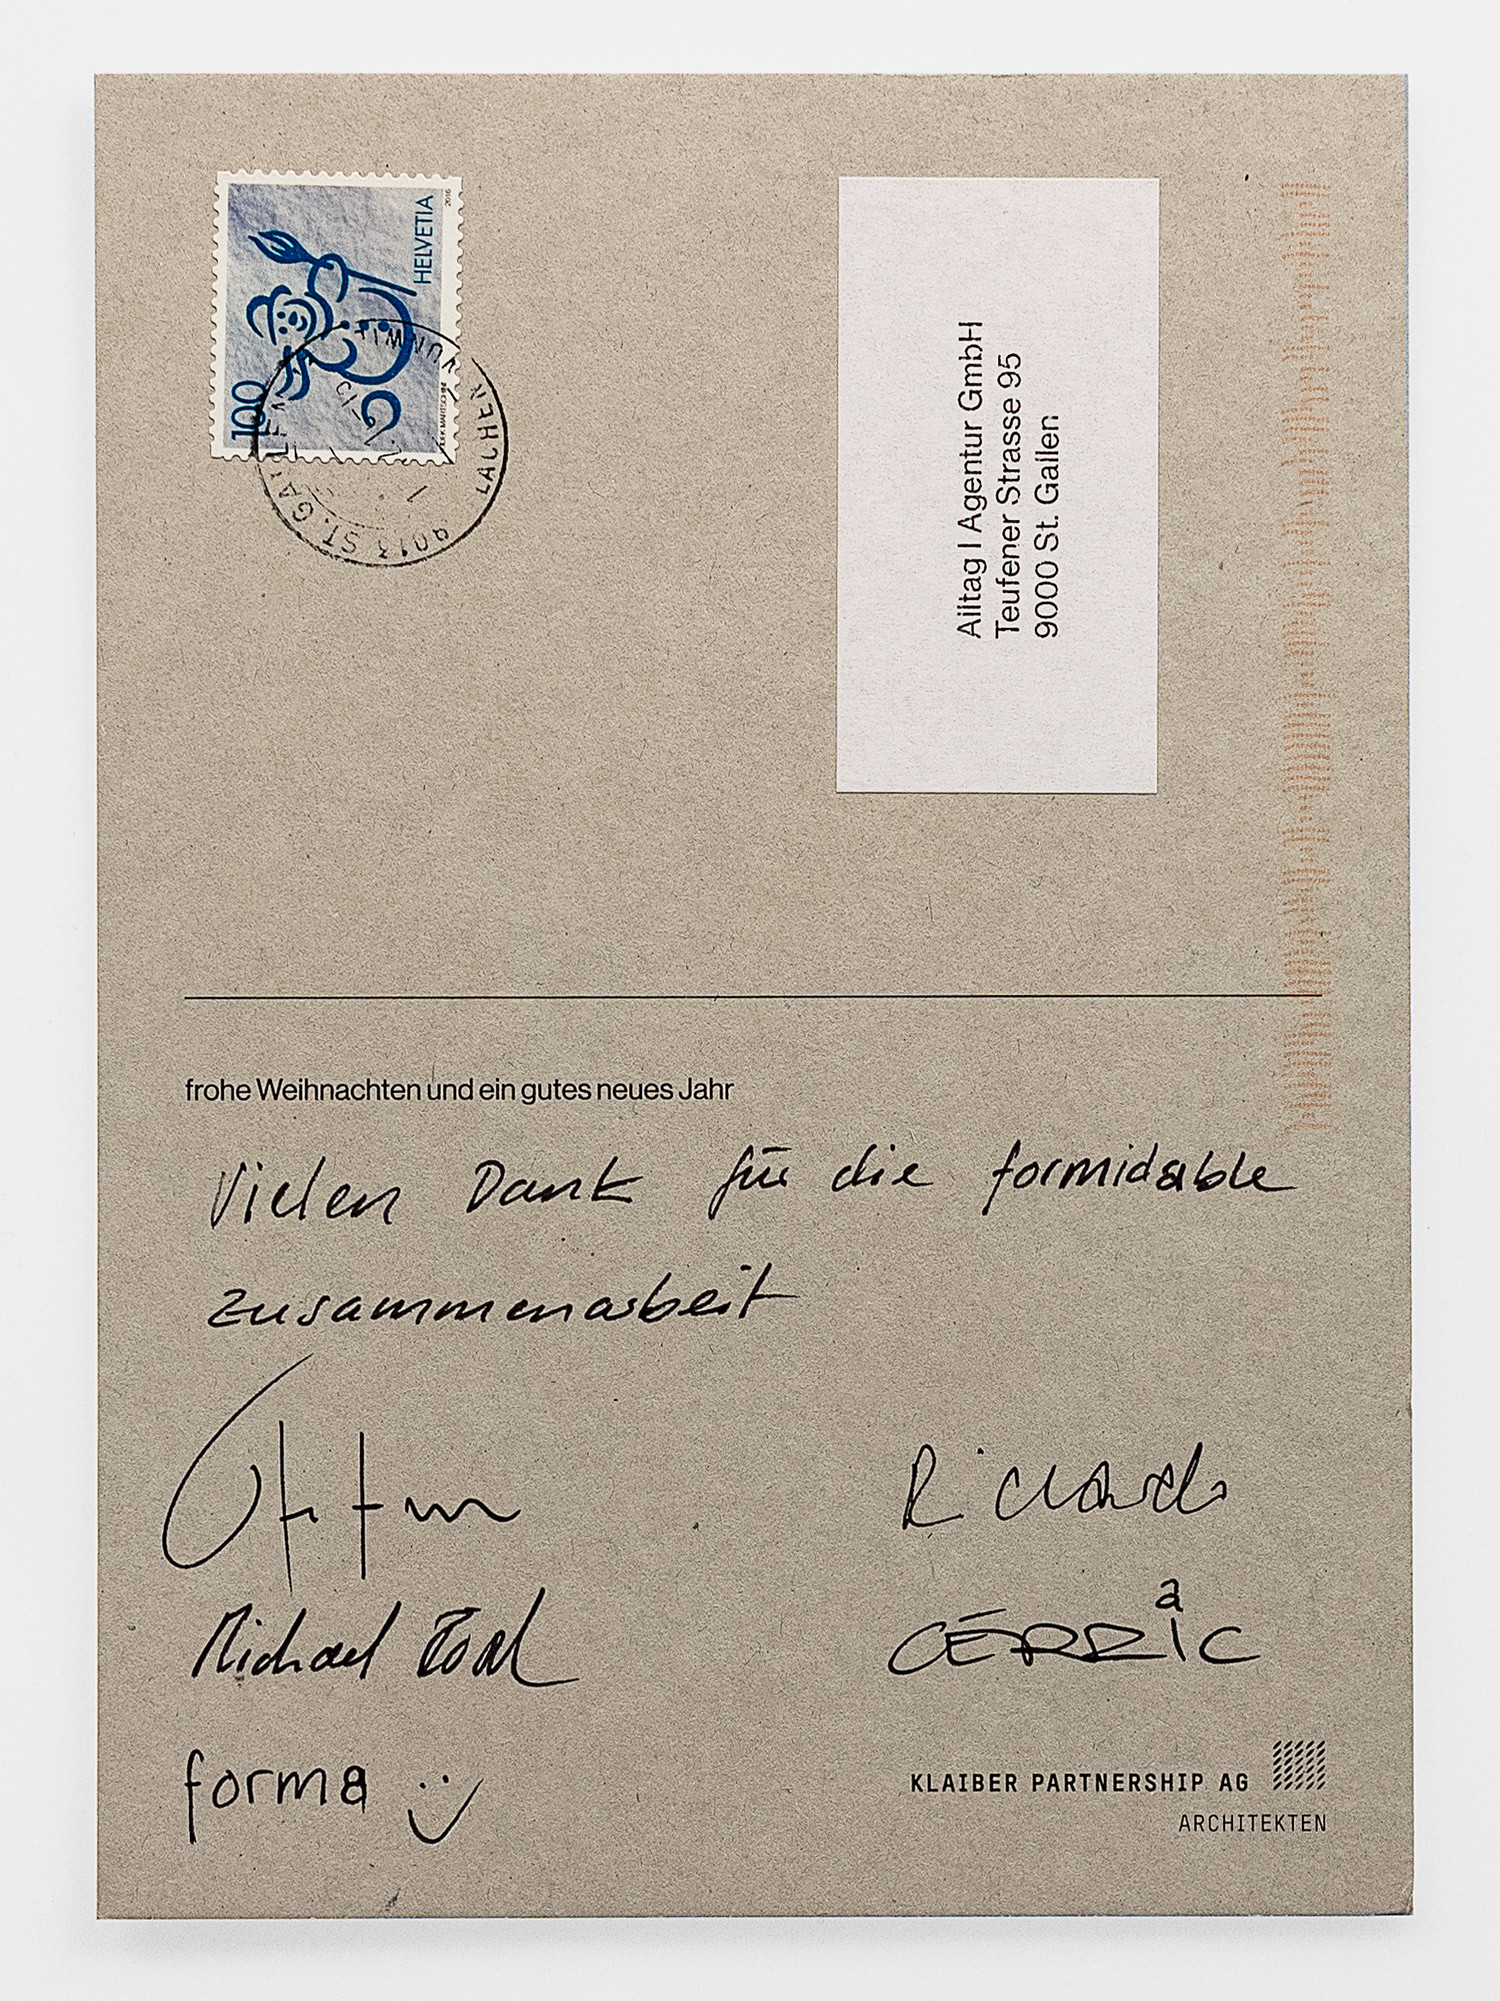 HELVETIA
2016
100
9013 ST. GALLEN
LACHEN
Alltag I Agentur GmbH
Teufener Strasse 95
9000 St. Gallen
frohe Weihnachten und ein gutes neues Jahr
Vielen Dank für die formidable
zusammenarbeit
Michael
forma
KLAIBER PARTNERSHIP AG
ARCHITEKTEN